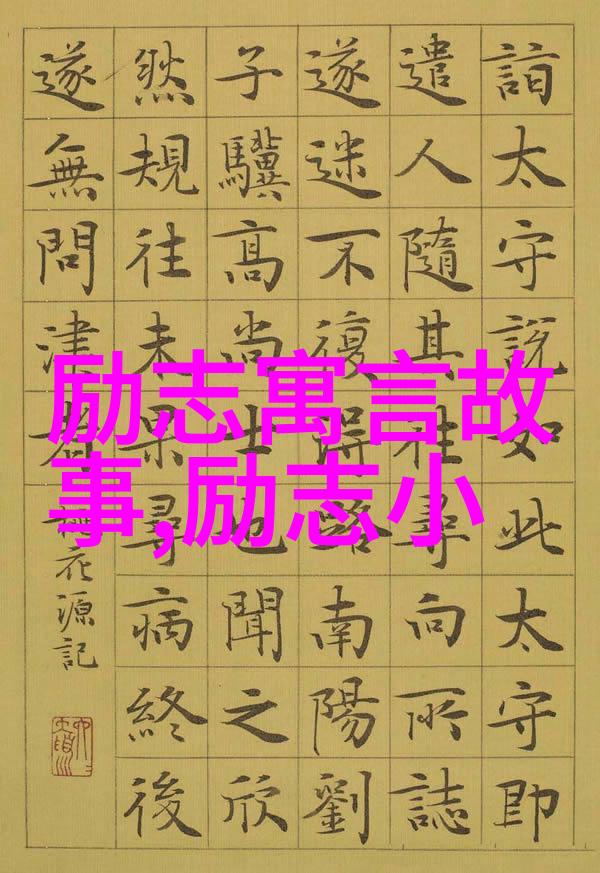 詣太守說如此太守即
遣人隨其往尋向所誌
遂迷不復得路南陽劉
子驥高尚士也聞之欣
然規往未果尋病終後
遂無問津者
桃花源記
励志寓言故
事,励志小